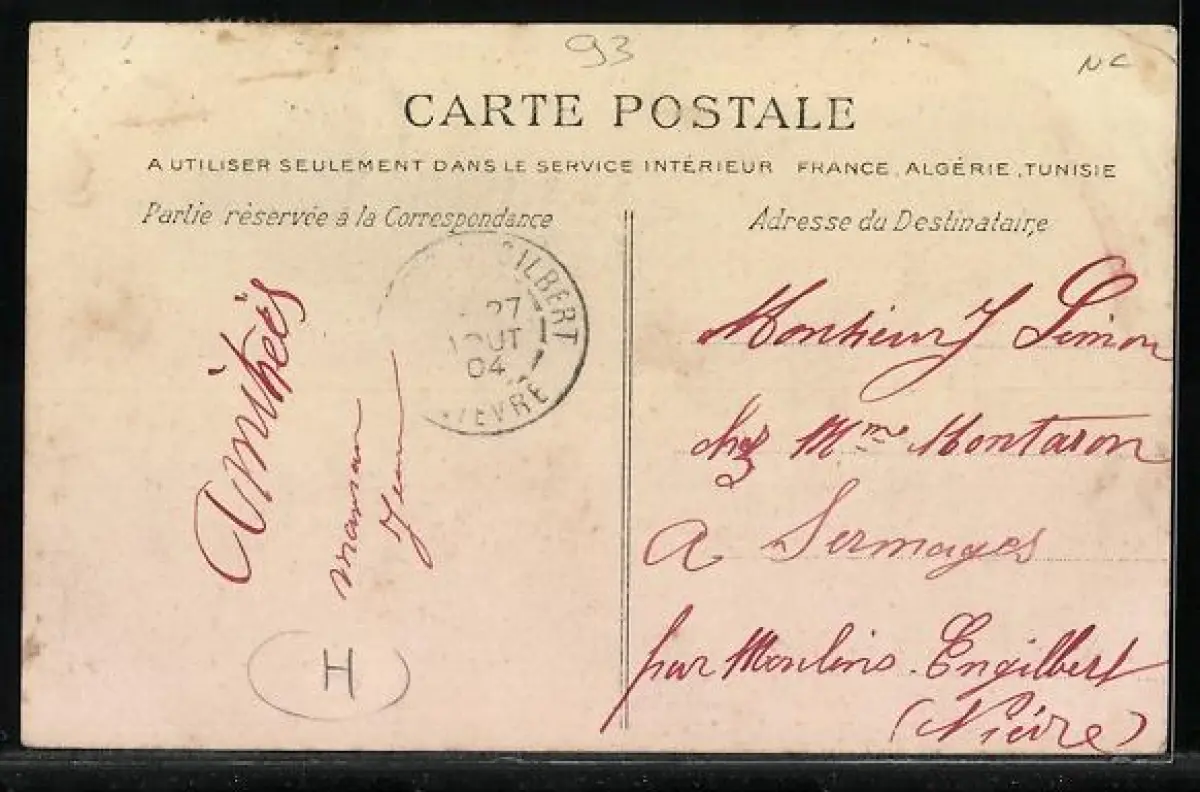 93
NC
CARTE POSTALE
A UTILISER SEULEMENT DANS LE SERVICE INTÉRIEUR FRANCE, ALGÉRIE, TUNISIE
Partie réservée à la Correspondance
Adresse du Destinataire
GILBERT
27
AOUT
04
NIEVRE
Amitiés
H
Monsieur J Simon
chez Mme Montaron
A Sermages
par Moulins-Engilbert
(Nièvre)